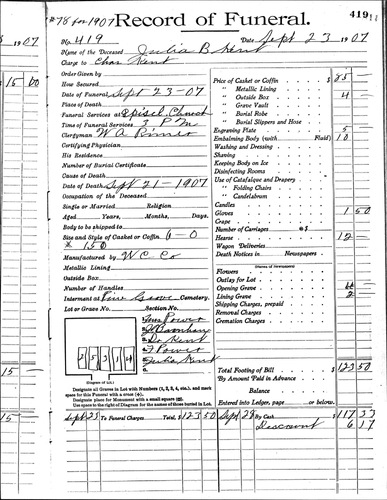 #78 for 1907 Record of Funeral. 419
No. 419 Date Sept 23 1907
Name of the Deceased Julia B Kent
Charge to Chas Kent
Order Given by
How Secured
Date of Funeral Sept 23-07
Place of Death
Funeral Services at Episcl Church
Time of Funeral Services 3 PM
Clergyman W A
Certifying Physician
His Residence
Number of Burial Certificate
Cause of Death
Date of Death Sept 21-1907
Occupation of the Deceased
Single or Married Religion
Aged Years, Months, Days.
Body to be shipped to
Size and Style of Casket or Coffin 6-0
# 150
Manufactured by W C Co
Metallic Lining
Outside Box
Number of Handles
Interment at Pine Grove Cemetery.
Lot or Grave No. Section No.
Power
Kent
Power
Julia Kent
2 5 3 1 4
(Diagram of Lot.)
Designate all Graves in Lot with Numbers (1, 2, 3, 4, etc.), and mark
space for this Funeral with a cross (+).
Designate place for Monument with a small square (□).
Use space to the right of Diagram for the names of those buried in Lot.
Price of Casket or Coffin $ 85
" Metallic Lining
" Outside Box 4
" Grave Vault
" Burial Robe
" Burial Slippers and Hose
Engraving Plate 5
Embalming Body (with Fluid) 10
Washing and Dressing
Shaving
Keeping Body on Ice
Disinfecting Rooms
Use of Catafalque and Drapery
" Folding Chairs
" Candelabrum
Candles
Gloves 1 50
Crape
Number of Carriages @ $
Hearse 12
Wagon Deliveries
Death Notices in Newspapers
(Names of Newspapers)
Flowers
Outlay for Lot
Opening Grave
Lining Grave 2
Shipping Charges, prepaid
Removal Charges
Cremation Charges
Total Footing of Bill $ 123 50
By Amount Paid in Advance
Balance
Entered into Ledger, page or below.
Sept 23 To Funeral Charges Total, $ 123 50 Sept 28 By Cash 117 33
Discount 6 17
1907
15 00
15
15